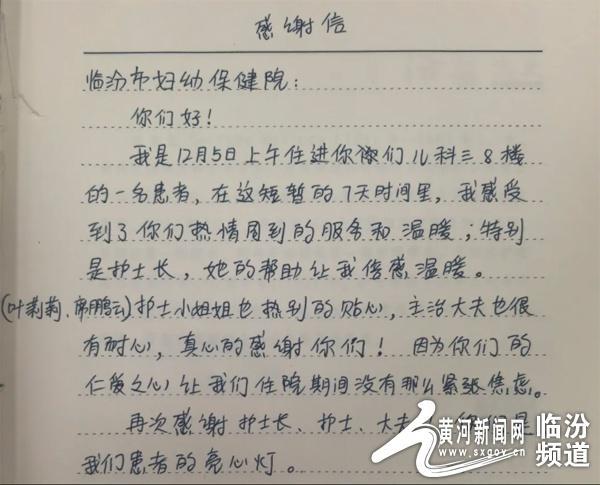 感谢信
临汾市妇幼保健院：
你们好！
我是12月5日上午住进你们儿科三8楼
的一名患者，在这短暂的7天时间里，我感受
到了你们热情周到的服务和温暖；特别
是护士长，她的帮助让我倍感温暖。
(叶莉莉、席鹏云)护士小姐姐也热别的贴心，主治大夫也很
有耐心，真心的感谢你们！因为你们的
仁爱之心让我们住院期间没有那么紧张焦虑。
再次感谢护士长、护士、大夫 你们是
我们患者的亮心灯。
黄河新闻网
www.sxgov.cn
临汾
频道